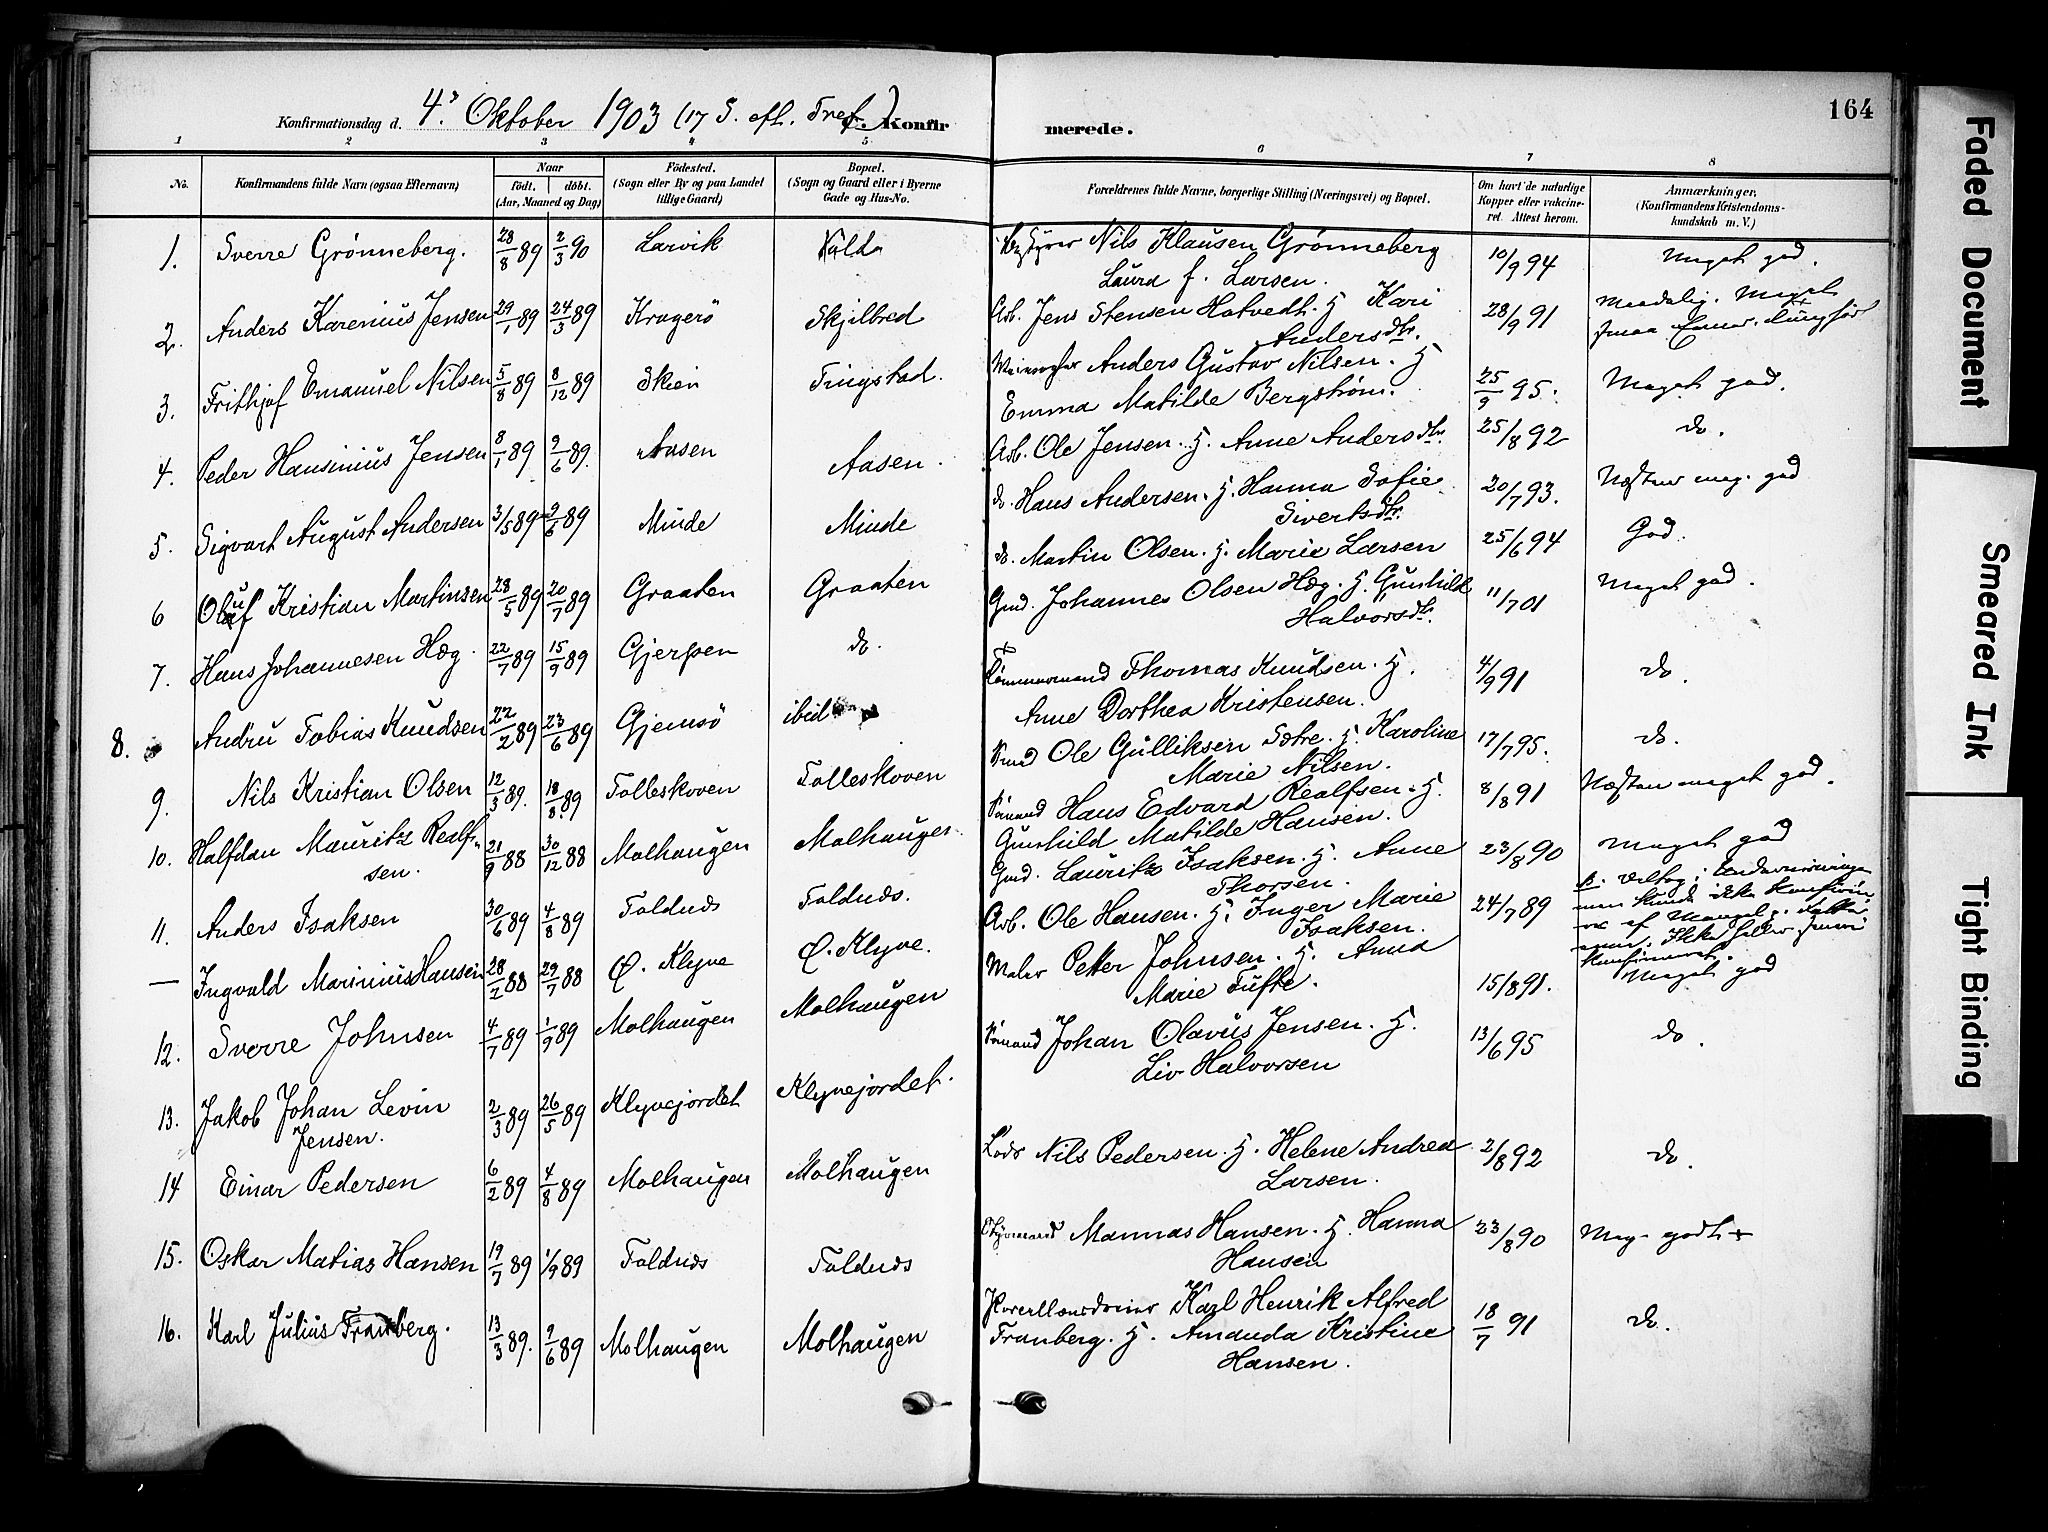 4. Oktober 1903 (17 S. eft. Tref.)
Konfirmationsdag d. Konfir merede. 164
1 2 3 4 5 6 7 8
No. Konfirmandens fulde Navn (ogsaa Efternavn) Naar født. døbt. (Aar, Maaned og Dag) Födested. (Sogn eller By og paa Landet tillige Gaard) Bopæl. (Sogn og Gaard eller i Byerne Gade og Hus-No. Forældrenes fulde Navne, borgerlige Stilling (Næringsvei) og Bopæl. Om havt de naturlige Kopper eller vakcineret. Attest herom. Anmærkninger. (Konfirmandens Kristendomskundskab m. V.)
1. Sverre Grønneberg. 28/8 89 2/3 90 Larvik Nils Klausen Grønneberg 10/9 94 Meget god.
Laura f. Larsen.
2. Anders Karenius Jensen 29/1 89 24/3 89 Kragerø Skjelbred Arb. Jens Stensen Hatvedt. H. Kari 28/9 91
Andersdtr.
3. Frithjof Emanuel Nilsen 5/8 89 8/12 89 Skien Tingstad. Anders Gustav Nilsen. H. 25/9 95. Meget god.
Emma Matilde Bergstrøm.
4. Peder Hansinius Jensen 8/1 89 9/6 89. Aasen Aasen. Arb. Ole Jensen. H. Anne Andersdtr. 25/8 92 do.
5. Sigvart August Andersen 3/5 89 9/6 89 Minde Minde do. Hans Andersen. H. Hanna Sofie 20/7 93. Næsten meg. god
Sivertsdtr.
6 Oluf Kristian Martinsen 28/5 89 20/7 89 Graaten Graaten do. Martin Olsen. H. Marie Larsen 25/6 94 God.
7. Hans Johannesen Hæg. 22/7 89 15/9 89 Gjerpen do. Gmd. Johannes Olsen Hæg. H. Gunhild 11/7 01 Meget god.
Halvorsdtr.
8. Andru Tobias Knudsen 22/2 89 23/6 89 Gjemsø ibid Tømmermand Thomas Knudsen. H. 4/9 91 do.
Anne Dorthea Kristensen.
9. Nils Kristian Olsen 12/3 89. 18/8 89 Folleskoven Folleskoven Ole Gulliksen Sætre. H. Karoline 17/7 95. do.
Marie Nilsen.
10. Halfdan Mauritz Realfsen. 21/9 88 30/12 88 Molhaugen Molhaugen Sømand Hans Edvard Realfsen. H. 8/8 91 Næsten meget god.
Gunhild Matilde Hansen.
11. Anders Isaksen 30/6 89 4/8 89 Foldnes Foldnes. Gmd. Lauritz Isaksen. H. Anne 23/8 90 Meget god
Thorsen.
— Ingvald Marinius Hansen 28/2 88 29/7 88 Ø. Klyve Ø. Klyve. Arb. Ole Hansen. H. Inger Marie 24/7 89 Deltog i Undervisningen
Isaksen. men kunde ikke konfirme-
res af Mangel
Ikke heller
konfirmeret.
12. Sverre Johnsen 4/7 89 1/9 89 Molhaugen Molhaugen Maler Petter Johnsen. H. Anna 15/8 91. Meget god
Marie Tufte.
13. Jakob Johan Levin 2/3 89 26/5 89 Klyvejordet Klyvejordet. Sømand Johan Olavus Jensen. H. 13/6 95 do.
Jensen. Liv Halvorsen
14 Einar Pedersen 6/2 89 4/8 89 Molhaugen Molhaugen Lods Nils Pedersen. H. Helene Andrea 2/8 92 do.
Larsen.
15. Oskar Matias Hansen 19/7 89 1/9 89 Foldnes Foldnes Styrmand Mannas Hansen. H. Hanna 23/8 90 Meg. godt +
Hansen
16. Karl Julius Franberg. 13/3 89. 9/6 89 Molhaugen Molhaugen Porcellænsdreier Karl Henrik Alfred 18/7 91 do.
Franberg. H. Amanda Kristine
Hansen.
Faded Document
Smeared Ink
Tight Binding